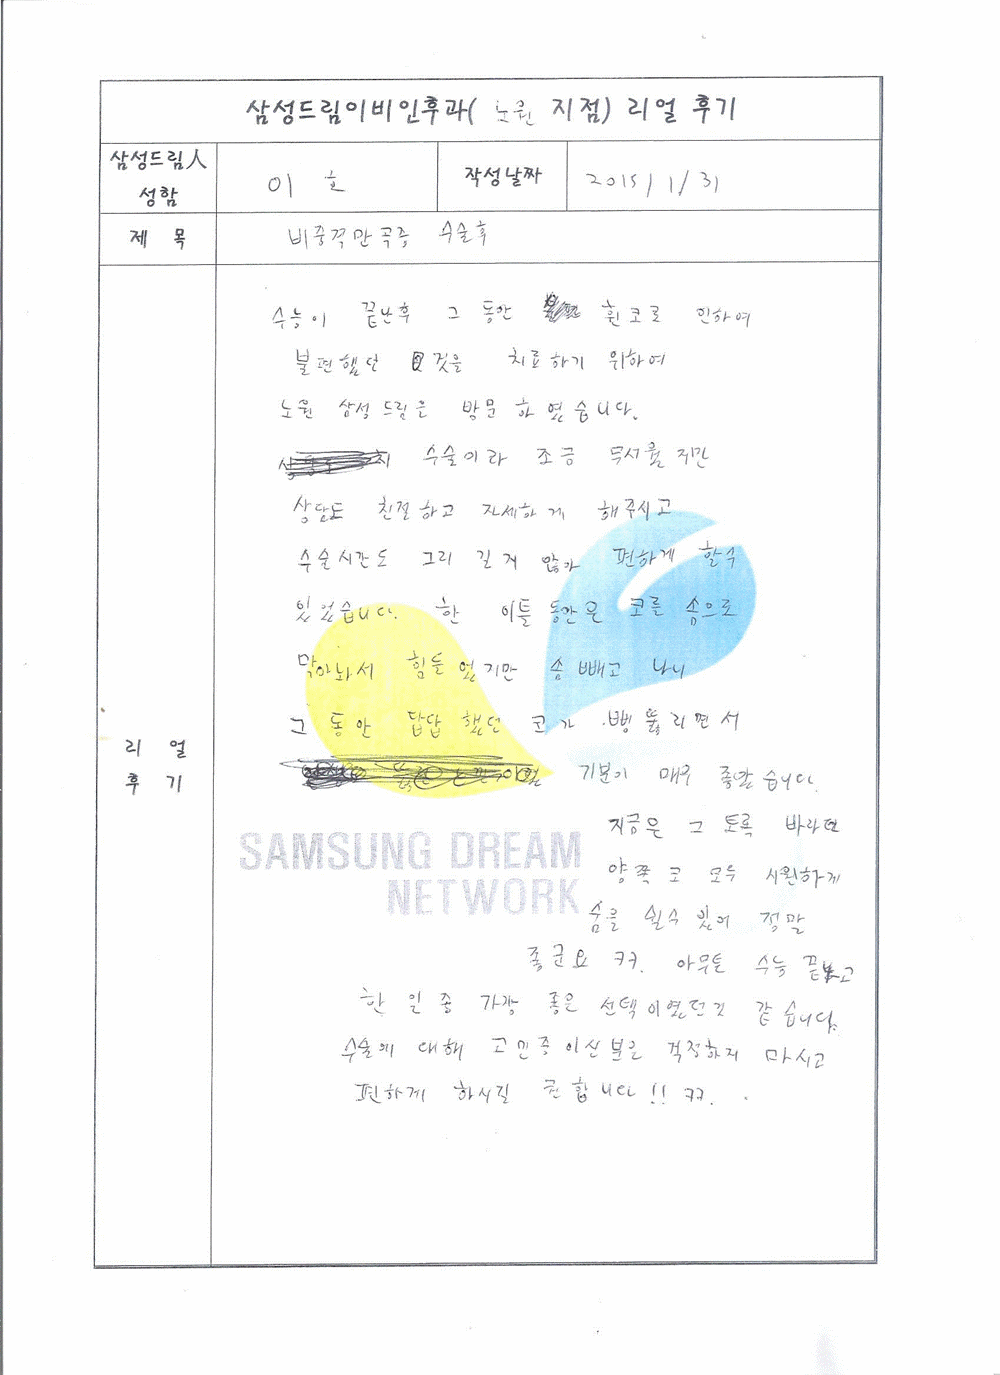 삼성드림이비인후과( 노원 지점) 리얼 후기
삼성드림人 성함
이 호
작성날짜
2015/1/31
제 목
비중격만곡증 수술후
리 얼 후 기
수능이 끝난후 그 동안 휜코로 인하여
불편했던 것을 치료하기 위하여
노원 삼성드림은 방문 하였습니다.
수술이라 조금 무서웠지만
상담도 친절하고 자세하게 해주시고
수술시간도 그리 길지 않아 편하게 할수
있었습니다. 한 이틀 동안은 코를 솜으로
막아놔서 힘들었지만 솜 빼고 나니
그 동안 답답했던 코가 뻥 뚫리면서
기분이 매우 좋았습니다.
지금은 그 토록 바라던
양쪽 코 모두 시원하게
숨을 쉴수 있어 정말
좋군요 ㅋㅋ. 아무튼 수능 끝나고
한 일 중 가장 좋은 선택이였던것 같습니다.
수술에 대해 고민중이신분은 걱정하지 마시고
편하게 하시길 권합니다!! ㅋㅋ.
SAMSUNG DREAM
NETWORK